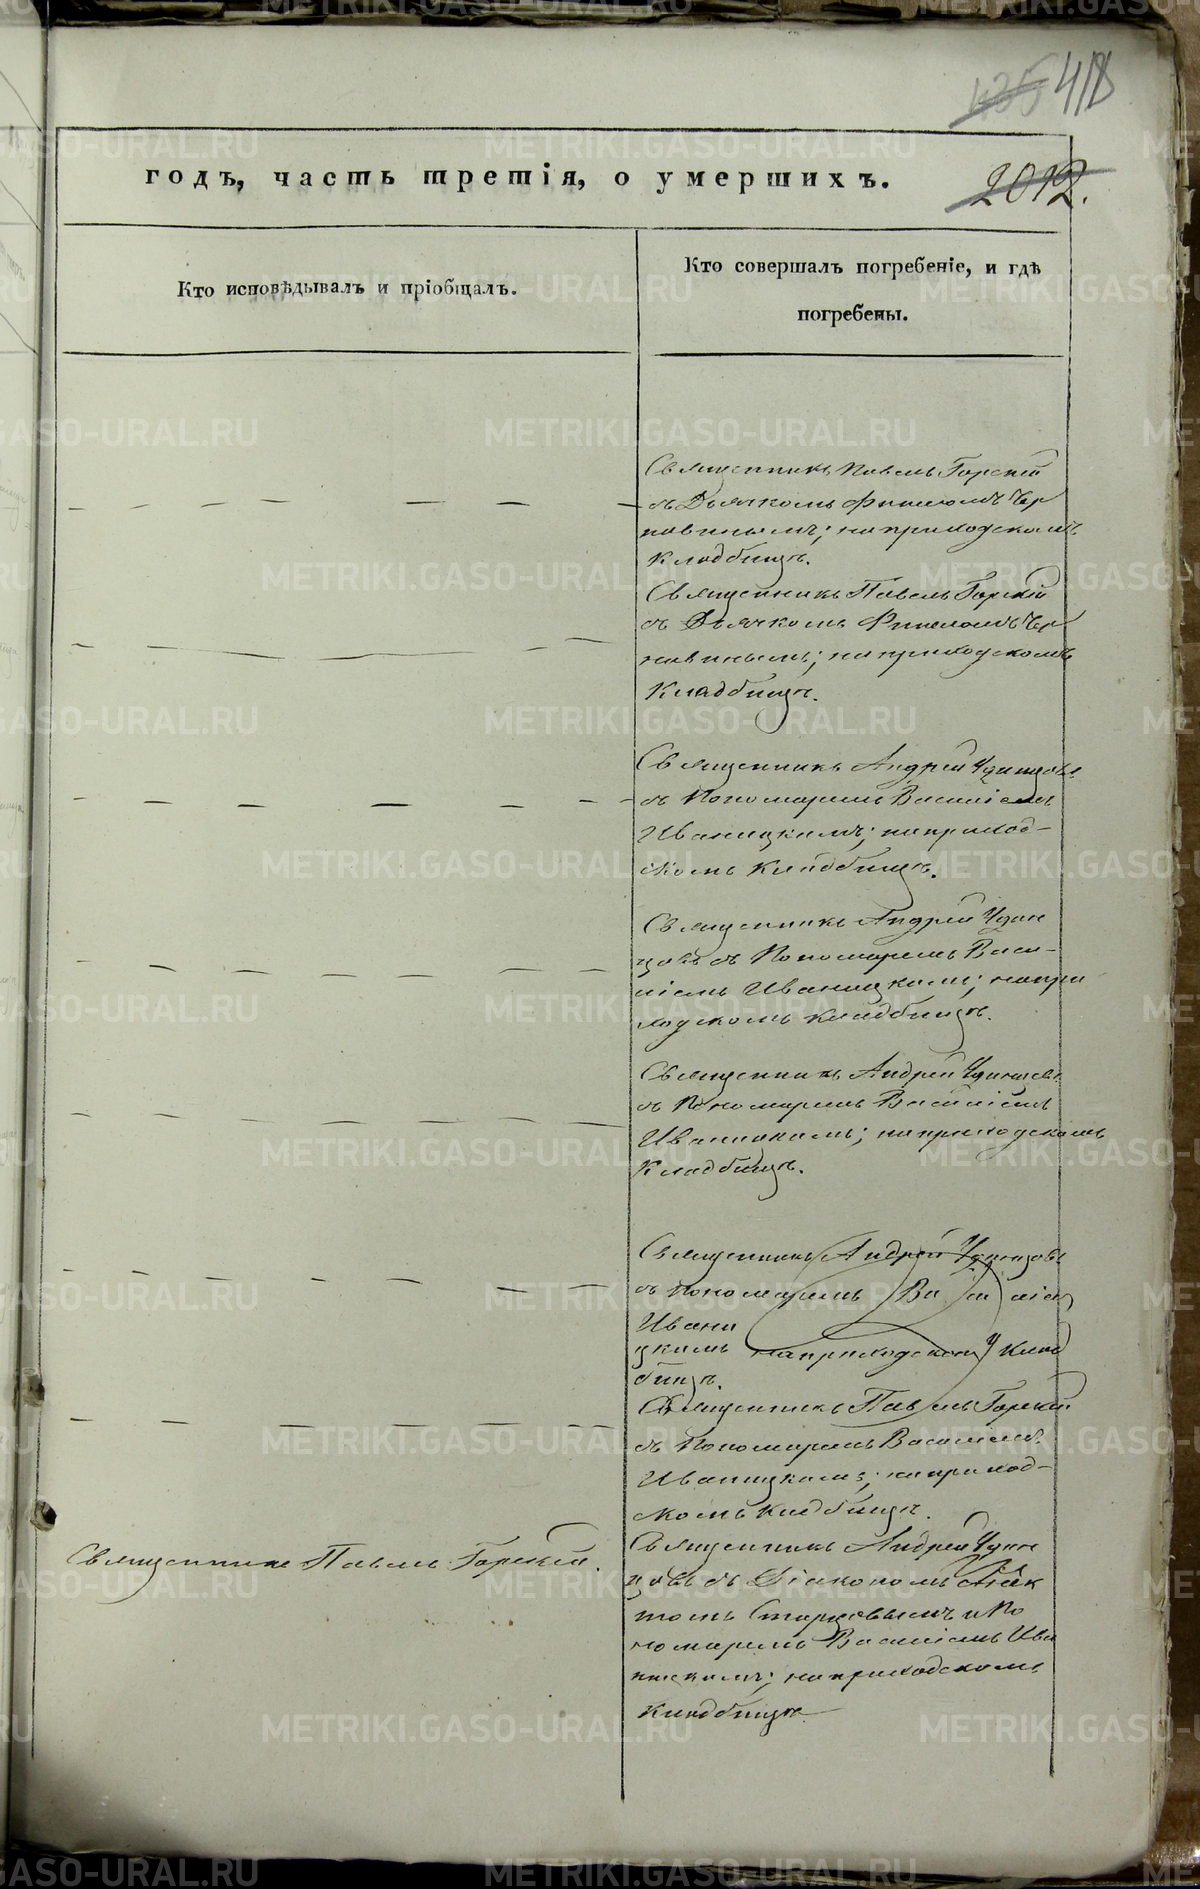 435 418
годъ, часть третія, о умершихъ.
2012.
Кто исповѣдывалъ и пріобщалъ.
Кто совершалъ погребеніе, и гдѣ
погребены.
Священникъ Павелъ Горскій
съ Дьячкомъ Филиппомъ Чер
навинымъ; на приходскомъ
кладбищѣ.
Священникъ Павелъ Горскій
съ Дьячкомъ Филиппомъ Чер
навинымъ; на приходскомъ
кладбищѣ.
Священникъ Андрей Удинцовъ
съ Пономаремъ Василіемъ
Иваницкимъ; на приход-
скомъ кладбищѣ.
Священникъ Андрей Удин
цовъ съ Пономаремъ Васи-
ліемъ Иваницкимъ; на при
ходскомъ кладбищѣ.
Священникъ Андрей Удинцовъ
съ Пономаремъ Василіемъ
Иваницкимъ; на приходскомъ
кладбищѣ.
Священникъ Андрей Удинцовъ
съ Пономаремъ Василіем
Ивани
цкимъ на приходском клад
бищѣ.
Священникъ Павелъ Горскій
съ Пономаремъ Василіемъ
Иваницкимъ; на приход-
скомъ кладбищѣ.
Священникъ Павелъ Горскій.
Священникъ Андрей Удин
цовъ съ Діакономъ
Старцовымъ и По
номаремъ Василіемъ Ива
ницкимъ; на приходскомъ
кладбищѣ.
METRIKI.GASO-URAL.RU